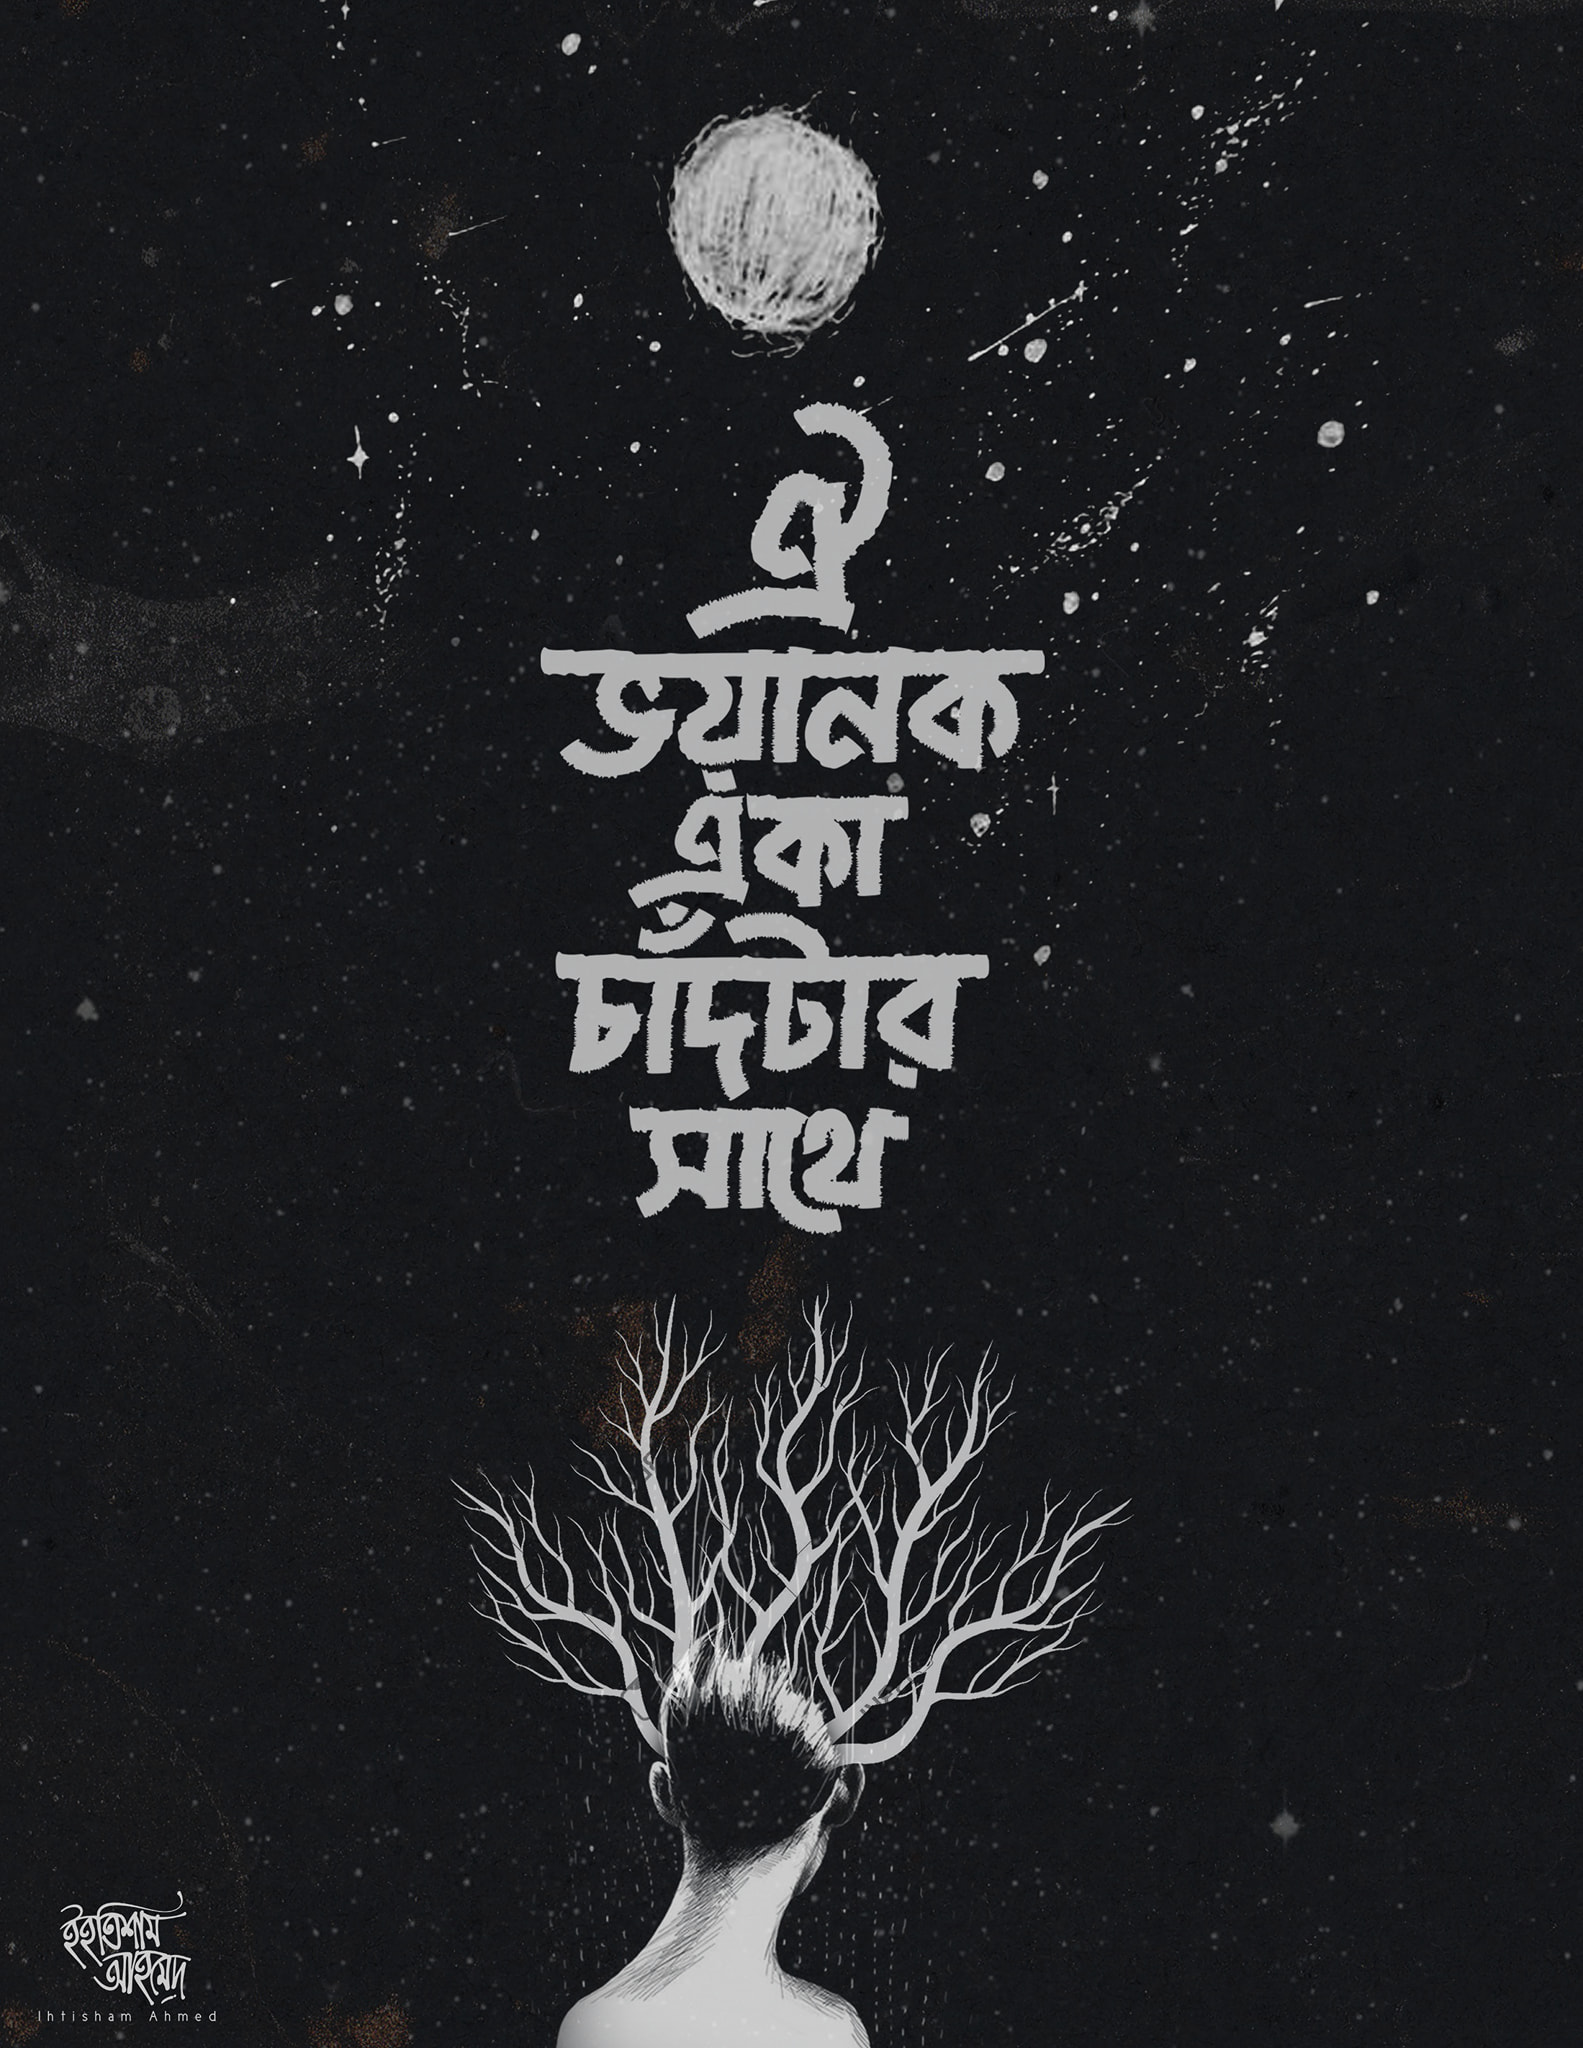 ঐ
ভয়ানক
একা
চাঁদটার
সাথে
ইহতিশাম
আহমেদ
Ihtisham Ahmed